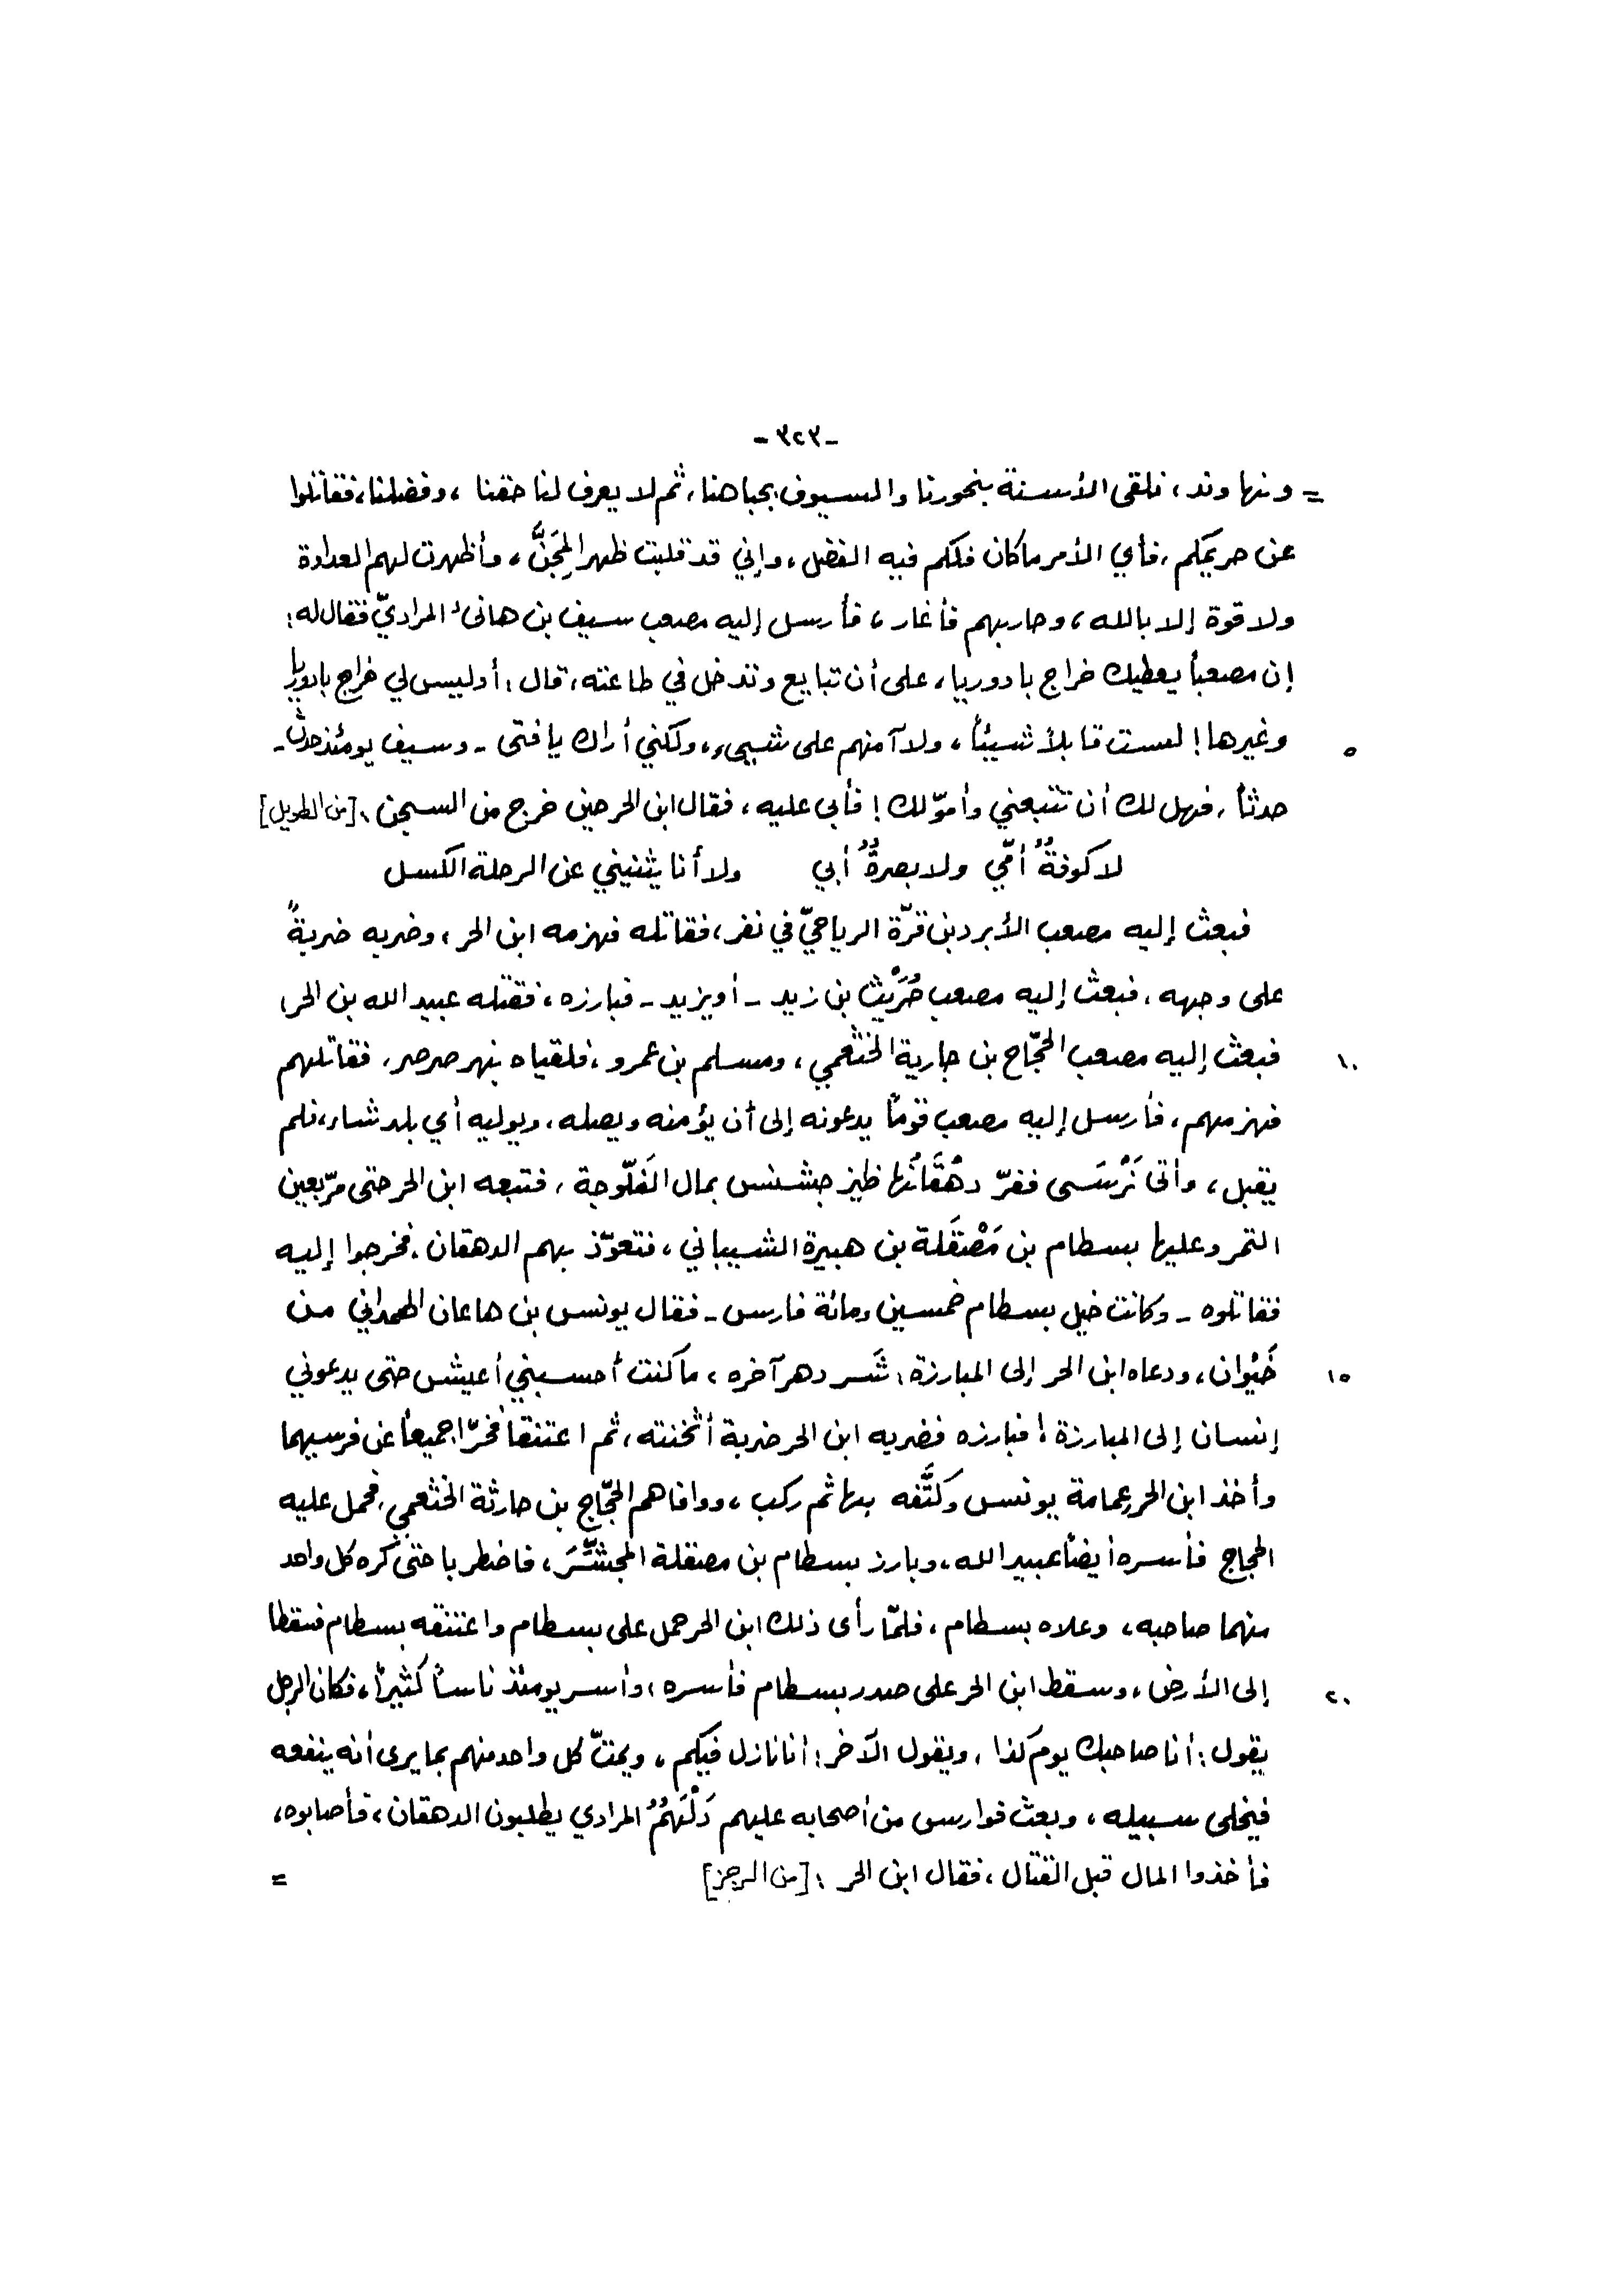 -٣٢٣-
= ونهاوند، نلقى الأسنة بنحورنا والسيوف بجباهنا، ثم لا يعرف لنا حقنا ، وفضلنا، فقاتلوا
عن حريمكم، فأي الأمر ما كان فلكم فيه الفضل، وإني قد قلبت ظهر المِجَنَّ، وأظهرت لهم العداوة
ولا قوة إلا بالله، وحاربهم فأغار، فأرسل إليه مصعب سيف بن هانئ المراديّ فقال له:
إن مصعباً يعطيك خراج بادوريا، على أن تبايع وتدخل في طاعته، قال: أوليس لي خراج بادوريا
وغيرها! لست قابلاً شيئاً، ولا آمنهم على شيىء، ولكني أراك يا فتى - وسيف يومئذ حدث - ٥
حدثاً، فهل لك أن تتبعني وأموّلك! فأبى عليه، فقال ابن الحر حين خرج من السجن: [من الطويل]
لا كوفةٌ أمّي ولا بصرةٌ أبي ولا أنا يثنيني عن الرحلة الكسل
فبعث إليه مصعب الأبرد بن قرّة الرياحيّ في نفر، فقاتله فهزمه ابن الحر، وضربه ضربةً
على وجهه، فبعث إليه مصعب حُرَيْث بن زيد - أو يزيد - فبارزه، فقتله عبيد الله بن الحر،
فبعث إليه مصعب الحجّاج بن جارية الخثعمي، ومسلم بن عمرو، فلقياه بنهر صرصر، فقاتلهم ١٠
فهزمهم، فأرسل إليه مصعب قوماً يدعونه إلى أن يؤمنه ويصله، ويوليه أي بلد شاء، فلم
يقبل، وأتى نَرْسَى ففرّ دهْقَانُها ظيز جشنس بمال الفَلّوجة، فتبعه ابن الحر حتى مرّ بعين
التمر وعليها بسطام بن مَصْقَلة بن هبيرة الشيباني، فتعوّذ بهم الدهقان. فخرجوا إليه
فقاتلوه - وكانت خيل بسطام خمسين ومائة فارس - فقال يونس بن هاعان الهمداني من
خَيْوان، ودعاه ابن الحر إلى المبارزة: شَر دهر آخره، ما كنت أحسبني أعيش حتى يدعوني ١٥
إنسان إلى المبارزة! فبارزه فضربه ابن الحر ضربة أثخنته، ثم اعتنقا فخرّا جميعاً عن فرسيهما
وأخذ ابن الحر عمامة يونس وكتَّفه بها ثم ركب، ووافاهم الحجّاج بن حارثة الخثعمي، فحمل عليه
الحجاج فأسره أيضاً عبيد الله، وبارز بسطام بن مصقلة المجشَّرَ، فاضطربا حتى كره كل واحد
منهما صاحبه، وعلاه بسطام، فلمّا رأى ذلك ابن الحر حمل على بسطام واعتنقه بسطام فسقطا
إلى الأرض، وسقط ابن الحر على صدر بسطام فأسره، وأسر يومئذ ناساً كثيراً، فكان الرجل ٢٠
يقول: أنا صاحبك يوم كذا، ويقول الآخر: أنا نازل فيكم، ويمتّ كل واحد منهم بما يرى أنه ينفعه
فيخلى سبيله، وبعث فوارس من أصحابه عليهم دَلْهَمُ المرادي يطلبون الدهقان، فأصابوه،
فأخذوا المال قبل القتال، فقال ابن الحر: [من الرجز] =